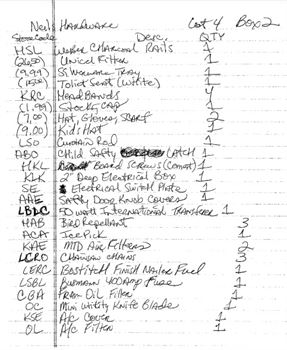 Neils Hardware Lot 4 Box 2
Store Code Desc. QTY
MSL Weber Charcoal Rails 1
(26.50) Unicel Filter 1
(9.99) Silverware Tray 1
(15.00) Toliet Seat (White) 1
KRC Head Bands 4
(1.99) Stocking Cap 1
(7.00) Hat, Gloves, Scarf 2
(9.00) Kids Hat 1
LSO Curtain Rod 1
ABO Child Safty Latch 1
MKL Board Screws (Comat) 1
KLK 2" Deep Electrical Box 1
SE Electrical Switch Plate 1
AAE Safty Door Knob Covers 1
LBLC 50 watt International Transfrer 1
MAB Bird Repellant 3
ACAT Ice Pick 1
KAE MTD Air Filters 2
LCRO Chainsaw Chains 3
LERC Bostitch Finish Nailer Fuel 1
LSBL Busmann 400Amp Fuse 1
CBA Fram Oil Filter 1
OC Mini Utility Knife Blade 1
KSE A/C Cover 1
OL A/C Filter 1